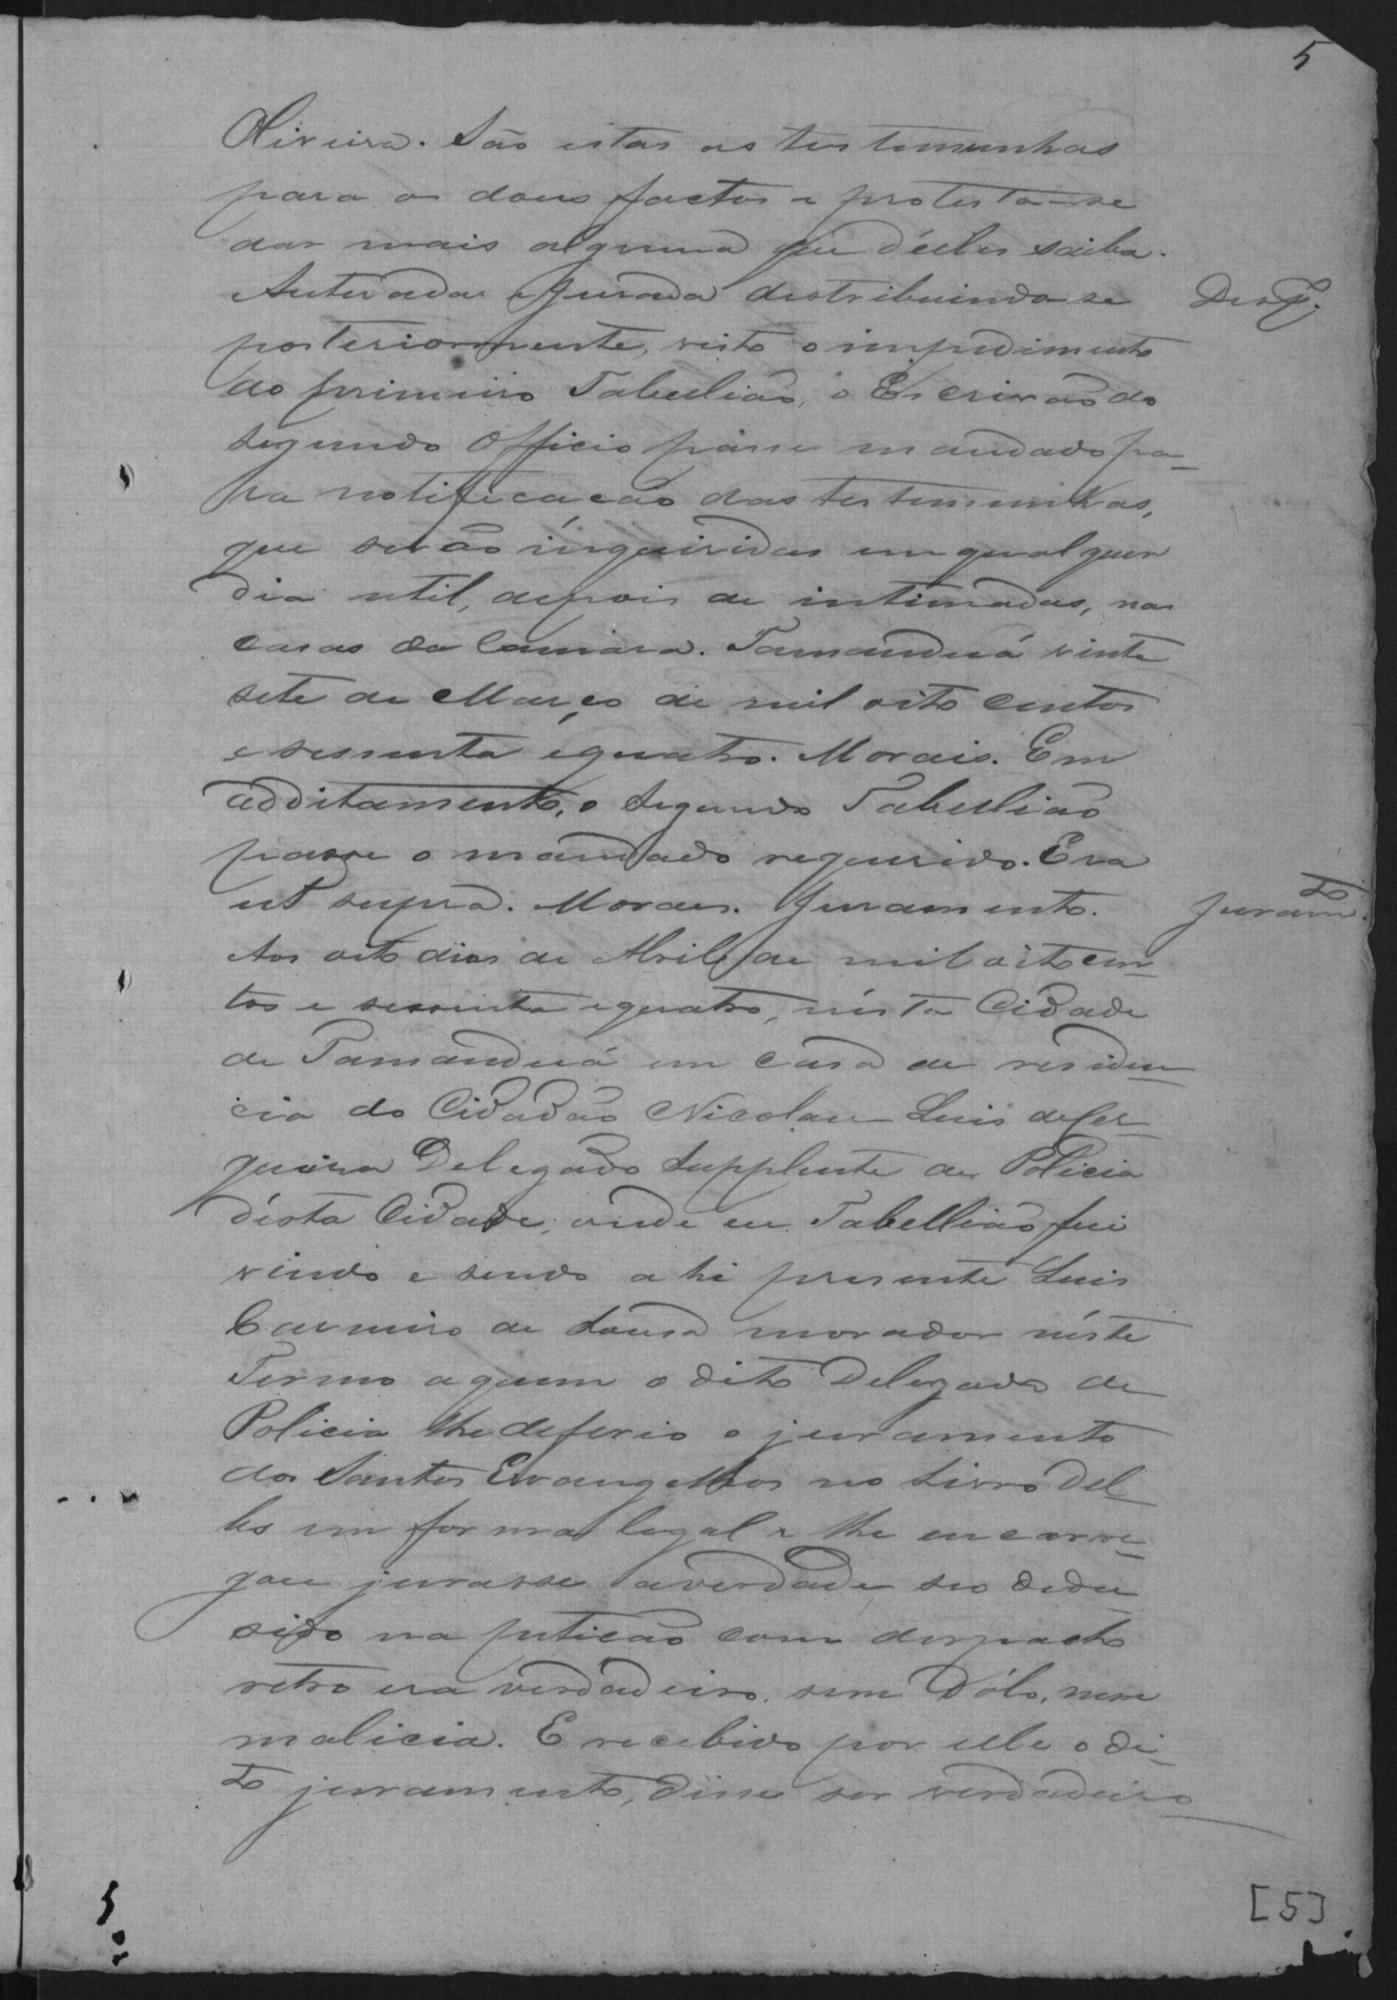 5
Oliveira. São estas as testemunhas
para os dous factos e protesta-se
dar mais alguma que d'elles saiba.
Autuada e jurada distribuindo-se
Desp.
posteriormente, visto o impedimento
do primeiro Tabellião, o Escrivão do
segundo Officio passe mandado pa-
ra notificação das testemunhas,
que serão inqueiridas em qualquer
dia util, depois de intimadas, nas
casas da Camara. Tamanduá vinte
sete de Março de mil oito centos
e sessenta e quatro. Morais. Em
additamento, o Segundo Tabellião
passe o mandado requerido. Era
ut supra. Moraes. Juramento.
Juramto.
Aos oito dias de Abril de mil oitocen-
tos e sessenta e quatro, nésta Cidade
de Tamanduá em casa de residen-
cia do Cidadão Nicolau Luis de Cer-
queira Delegado Supplente de Policia
désta Cidade, onde eu Tabellião fui
vindo e sendo ahi presente Luis
Carneiro de Sousa morador néste
Termo a quem o dito Delegado de
Policia lhe deferio o juramento
dos Santos Evangelhos no Livro del-
les em forma legal e lhe encarre-
gou jurasse a verdade, se o dedu
sido na petição com despacho
retro era verdadeiro, sem dólo, nem
malicia. E recebido por elle o di-
to juramento, disse ser verdadeiro
[5]